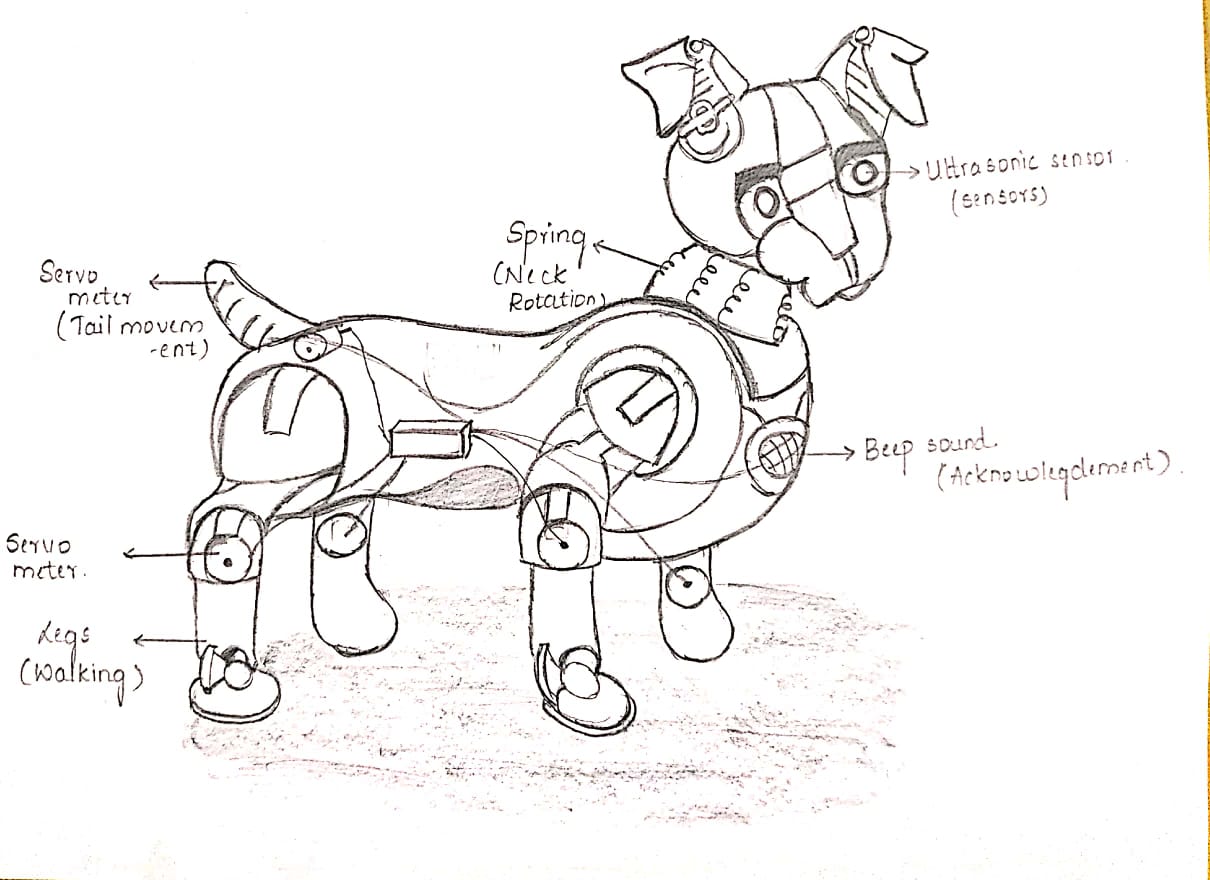 Ultrasonic sensor.
(sensors)
Spring
(Neck
Rotation)
Servo
meter
(Tail movem
-ent)
Beep sound.
(Acknowlegdement).
Servo
meter.
Legs
(Walking)